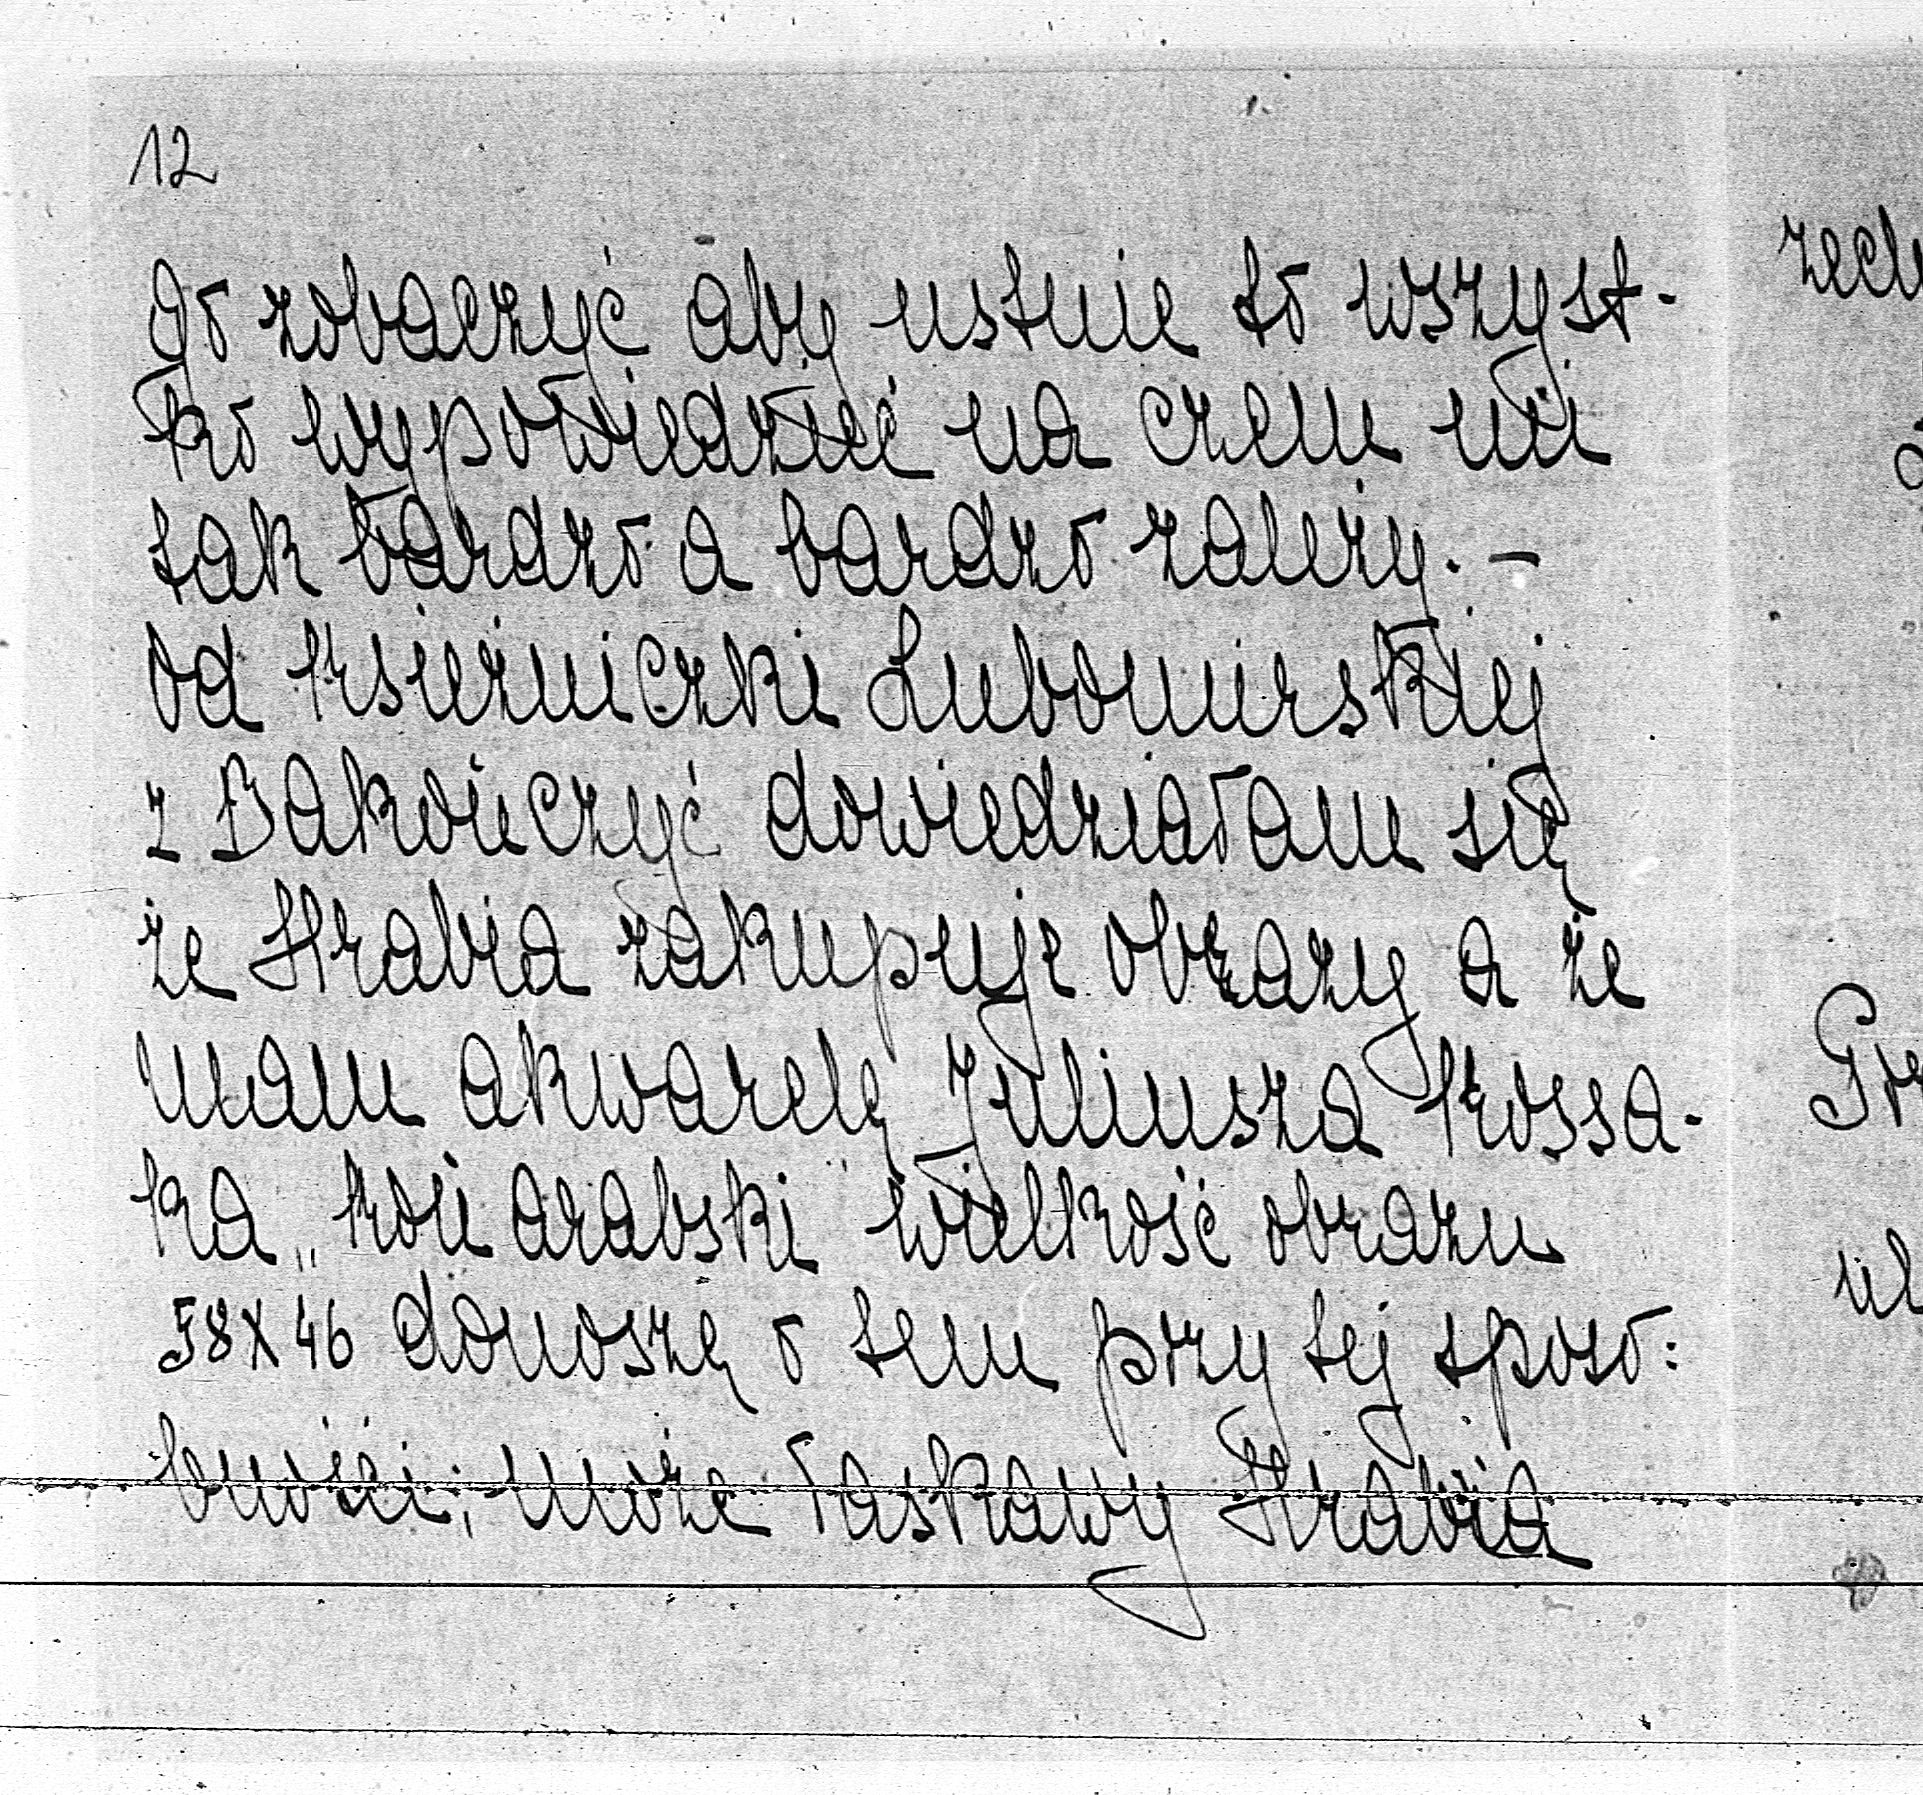 12
go zobaczyć aby ustnie to wszyst-
ko wypowiedzieć na czem mi
tak bardzo a bardzo zależy. —
Od Księżniczki Lubomirskiej
z Bakończyć dowiedziałam się
że Hrabia zakupuje obrazy a że
mam akwarelę Juliusza Kossa-
ka „koń arabski wielkość obrazu
58X46 donoszę o tem przy tej sposo:
bności; może łaskawy Hrabia